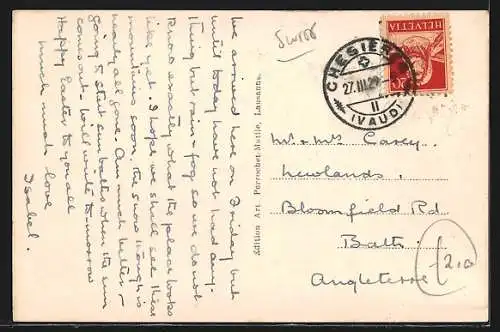 We arrived here on Friday but
until today have not had any-
thing but rain & fog, so we do not
know exactly what the place looks
like yet. I hope we shall see these
mountains soon. the snow though is
nearly all gone. Am much better –
going to start sun baths when the sun
comes out – Will write to-morrow
Happy Easter to you all
much much love
Isabel.
Edition Art. Perrochet-Matile, Lausanne.
Swiss
HELVETIA
20
CHESIÈRES
27.III.29
II
(VAUD)
Mr & Mrs Casey,
Newlands,
Bloomfield Rd
Bath.
Angleterre
2.10